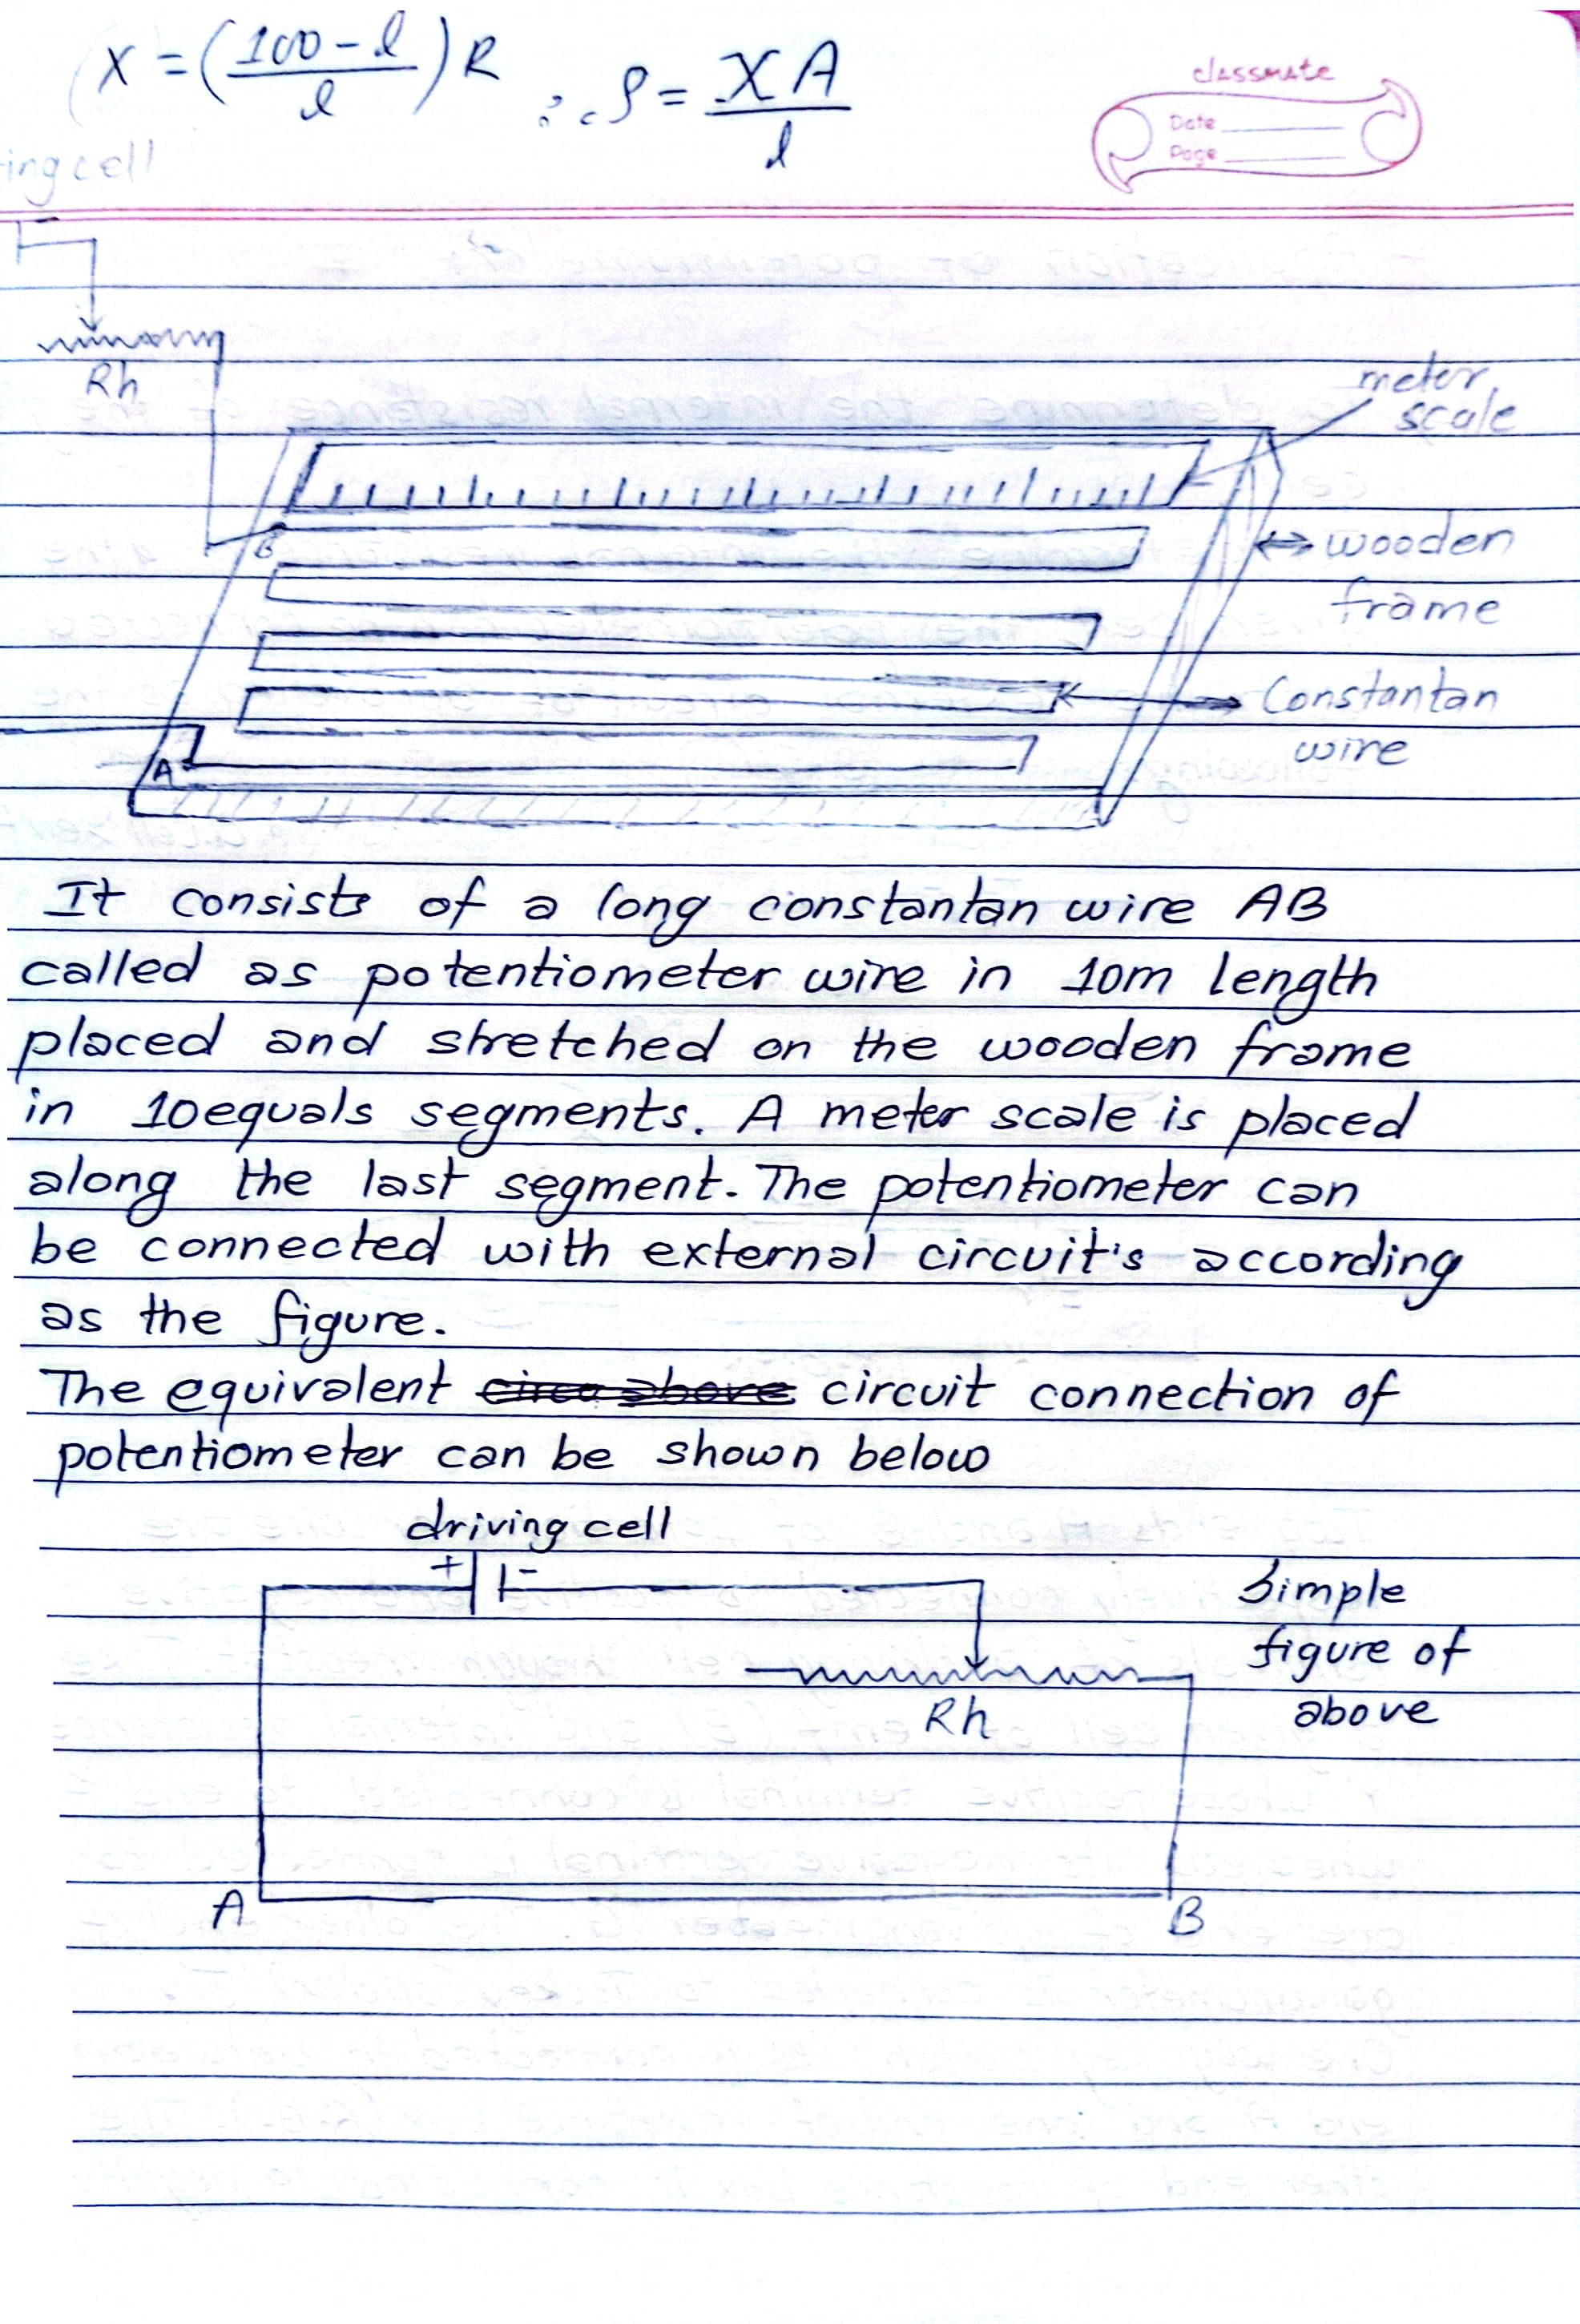 X = (100 - l / l) R ∴ ρ = XA / l
classmate
Date
Page
ing cell
Rh
meter
scale
B
wooden
frame
Constantan
wire
A
It consists of a long constantan wire AB
called as potentiometer wire in 10m length
placed and stretched on the wooden frame
in 10equals segments. A meter scale is placed
along the last segment. The potentiometer can
be connected with external circuit's according
as the figure.
The equivalent circuit connection of
potentiometer can be shown below
driving cell
+ -
Simple
figure of
above
Rh
A B